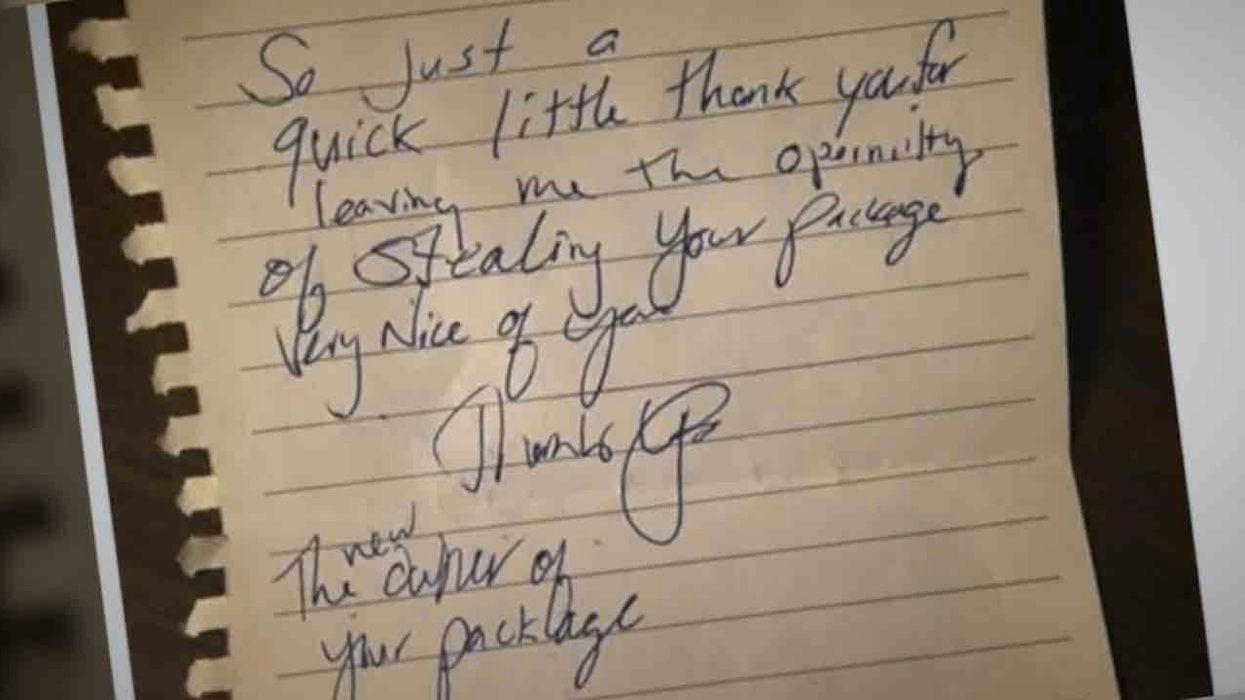 So Just a
quick little thank you for
leaving me the
of Stealing Your Package
Very Nice of you
Thanks
new
The owner of
your package